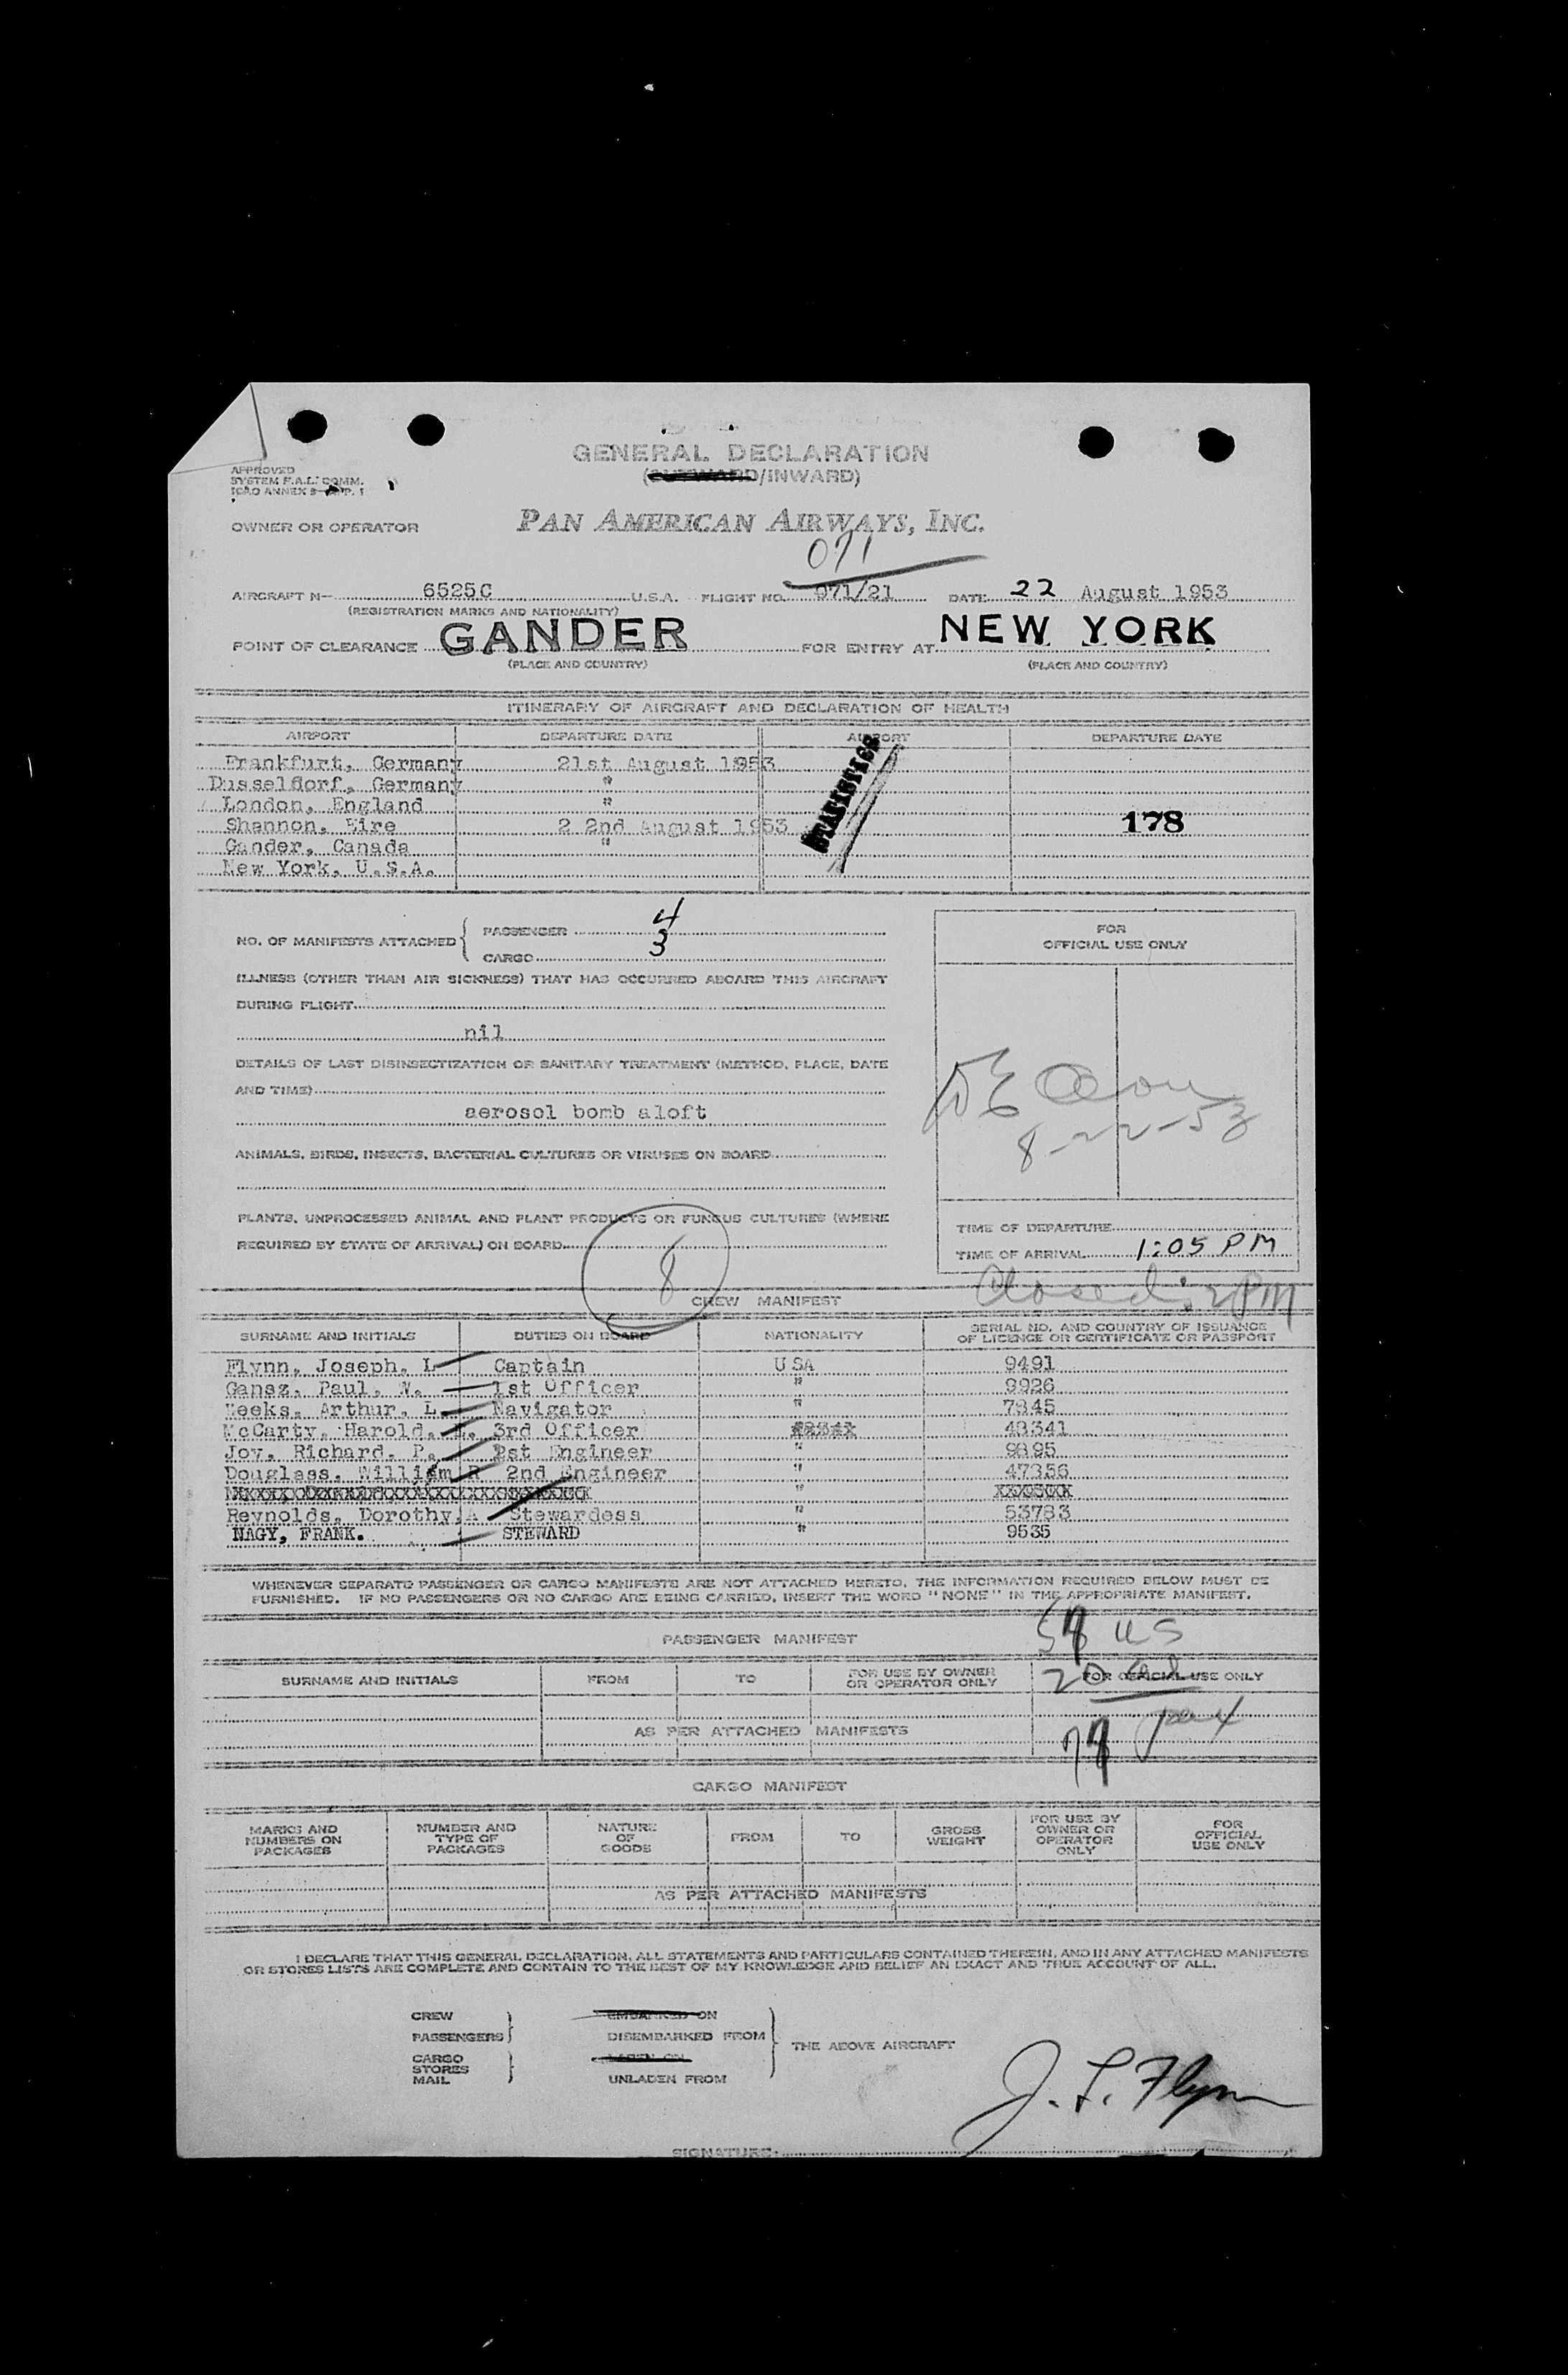 GENERAL DECLARATION
(OUTWARD/INWARD)
APPROVED
SYSTEM F.A.L. COMM.
ICAO ANNEX 9—APP. 1
OWNER OR OPERATOR
PAN AMERICAN AIRWAYS, INC.
071
AIRCRAFT N— 6525C U.S.A. FLIGHT NO. 071/21 DATE 22 August 1953
(REGISTRATION MARKS AND NATIONALITY)
POINT OF CLEARANCE GANDER FOR ENTRY AT NEW YORK
(PLACE AND COUNTRY) (PLACE AND COUNTRY)
ITINERARY OF AIRCRAFT AND DECLARATION OF HEALTH
AIRPORT DEPARTURE DATE AIRPORT DEPARTURE DATE
Frankfurt, Germany 21st August 1953
Dusseldorf, Germany "
London, England "
Shannon, Eire 2 2nd August 1953
Gander, Canada "
New York, U.S.A.
STATISTICS
178
NO. OF MANIFESTS ATTACHED
PASSENGER 4
CARGO 3
ILLNESS (OTHER THAN AIR SICKNESS) THAT HAS OCCURRED ABOARD THIS AIRCRAFT
DURING FLIGHT
nil
DETAILS OF LAST DISINSECTIZATION OR SANITARY TREATMENT (METHOD, PLACE, DATE
AND TIME)
aerosol bomb aloft
ANIMALS, BIRDS, INSECTS, BACTERIAL CULTURES OR VIRUSES ON BOARD
PLANTS, UNPROCESSED ANIMAL AND PLANT PRODUCTS OR FUNGUS CULTURES (WHERE
REQUIRED BY STATE OF ARRIVAL) ON BOARD
8
FOR
OFFICIAL USE ONLY
8-22-53
TIME OF DEPARTURE
TIME OF ARRIVAL 1:05 PM
CREW MANIFEST
SURNAME AND INITIALS DUTIES ON BOARD NATIONALITY SERIAL NO. AND COUNTRY OF ISSUANCE
OF LICENCE OR CERTIFICATE OR PASSPORT
Flynn, Joseph, L Captain USA 9491
Gansz, Paul, W. 1st Officer " 9926
Weeks, Arthur, L. Navigator " 7845
McCarty, Harold, 3rd Officer 48341
Joy, Richard, P. 1st Engineer " 9895
Douglass, William R 2nd Engineer " 47356
"
Reynolds, Dorothy A Stewardess " 53783
NAGY, FRANK. STEWARD " 9535
WHENEVER SEPARATE PASSENGER OR CARGO MANIFESTS ARE NOT ATTACHED HERETO, THE INFORMATION REQUIRED BELOW MUST BE
FURNISHED. IF NO PASSENGERS OR NO CARGO ARE BEING CARRIED, INSERT THE WORD "NONE" IN THE APPROPRIATE MANIFEST.
PASSENGER MANIFEST
US
SURNAME AND INITIALS FROM TO FOR USE BY OWNER
OR OPERATOR ONLY FOR OFFICIAL USE ONLY
20
AS PER ATTACHED MANIFESTS
CARGO MANIFEST
MARKS AND
NUMBERS ON
PACKAGES
NUMBER AND
TYPE OF
PACKAGES
NATURE
OF
GOODS
FROM
TO
GROSS
WEIGHT
FOR USE BY
OWNER OR
OPERATOR
ONLY
FOR
OFFICIAL
USE ONLY
AS PER ATTACHED MANIFESTS
I DECLARE THAT THIS GENERAL DECLARATION, ALL STATEMENTS AND PARTICULARS CONTAINED THEREIN, AND IN ANY ATTACHED MANIFESTS
OR STORES LISTS ARE COMPLETE AND CONTAIN TO THE BEST OF MY KNOWLEDGE AND BELIEF AN EXACT AND TRUE ACCOUNT OF ALL.
CREW EMBARKED ON
PASSENGERS DISEMBARKED FROM
THE ABOVE AIRCRAFT
CARGO LADEN ON
STORES
MAIL UNLADEN FROM
J. L. Flynn
SIGNATURE